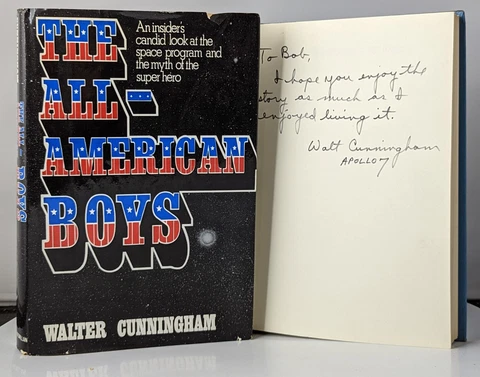 An insider's
candid look at the
space program and
the myth of the
super hero
THE
ALL-
AMERICAN
BOYS
WALTER CUNNINGHAM
THE ALL- BOYS
To Bob,
I hope you enjoy the
story as much as I
enjoyed living it.
Walt Cunningham
APOLLO 7